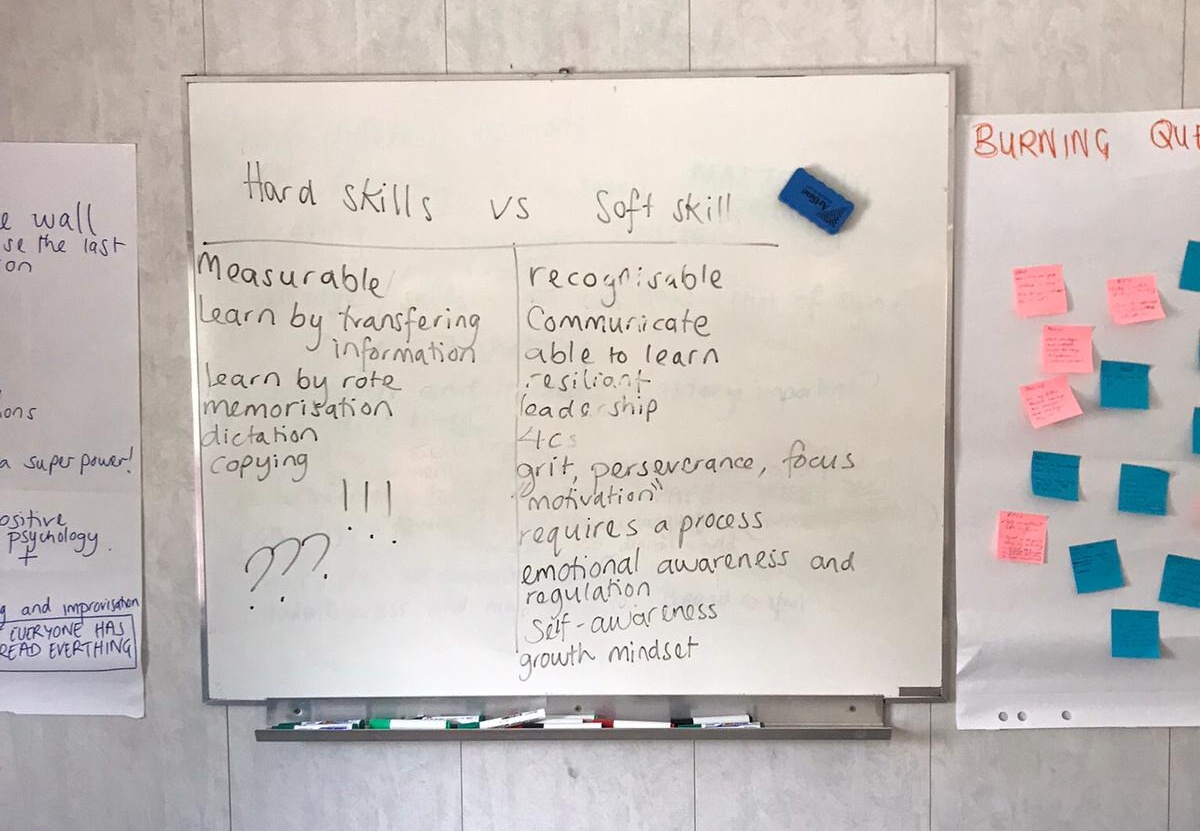 e wall
se the last
on
ons
a super power!
ositive
psychology
+
g and improvisation
EVERYONE HAS
READ EVERTHING
Hard skills vs Soft skill
Measurable
learn by transfering
information
learn by rote
memorisation
dictation
copying
!!!
???
recognisable
Communicate
able to learn
resiliant
leadership
4cs
grit, perseverance, focus
"motivation"
requires a process
emotional awareness and
regulation
Self-awareness
growth mindset
BURNING QUE